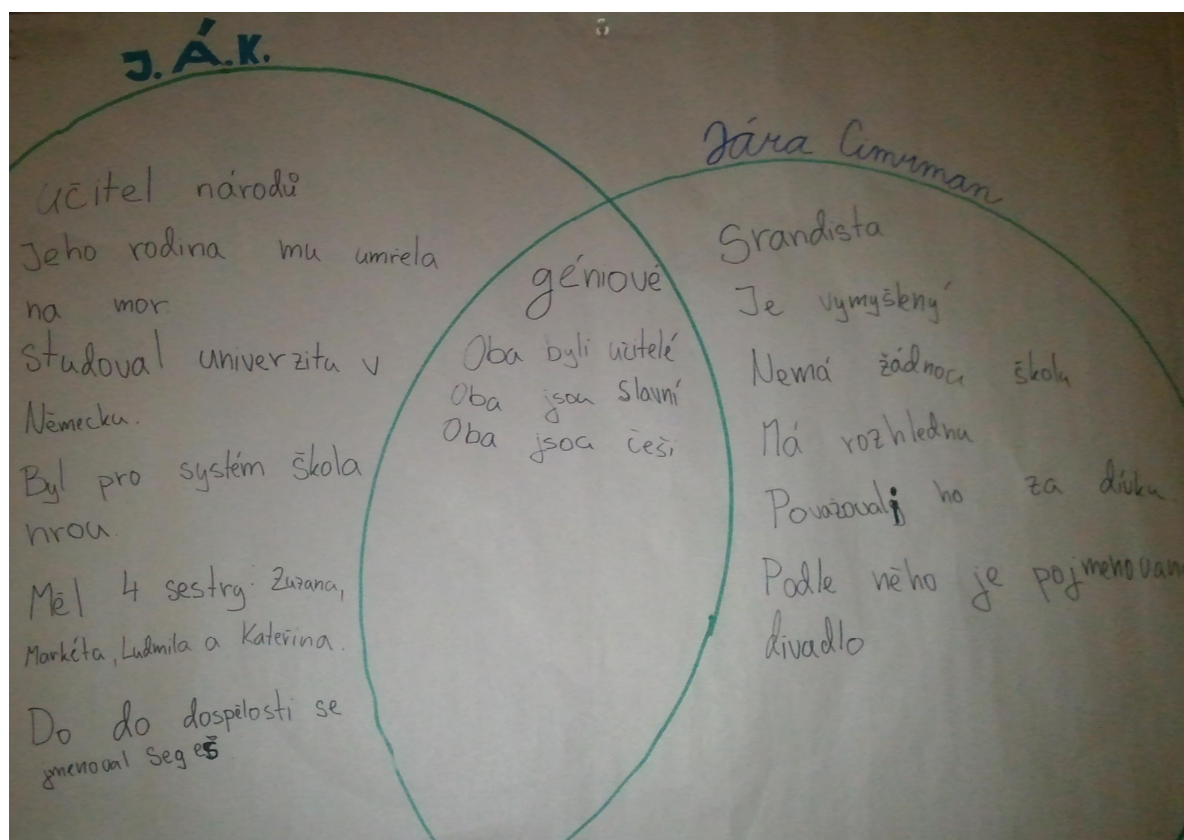 J.Á.K.
učitel národů
Jeho rodina mu umřela
na mor.
Studoval univerzitu v
Německu.
Byl pro systém škola
hrou.
Měl 4 sestry: Zuzana,
Markéta, Ludmila a Kateřina.
Do do dospělosti se
jmenoval Segeš
géniové
Oba byli učitelé
Oba jsou slavní
Oba jsou češi
Jára Cimrman
Srandista
Je vymyšlený
Nemá žádnou školu
Má rozhlednu
Považovali ho za dívku.
Podle něho je pojmenován
divadlo